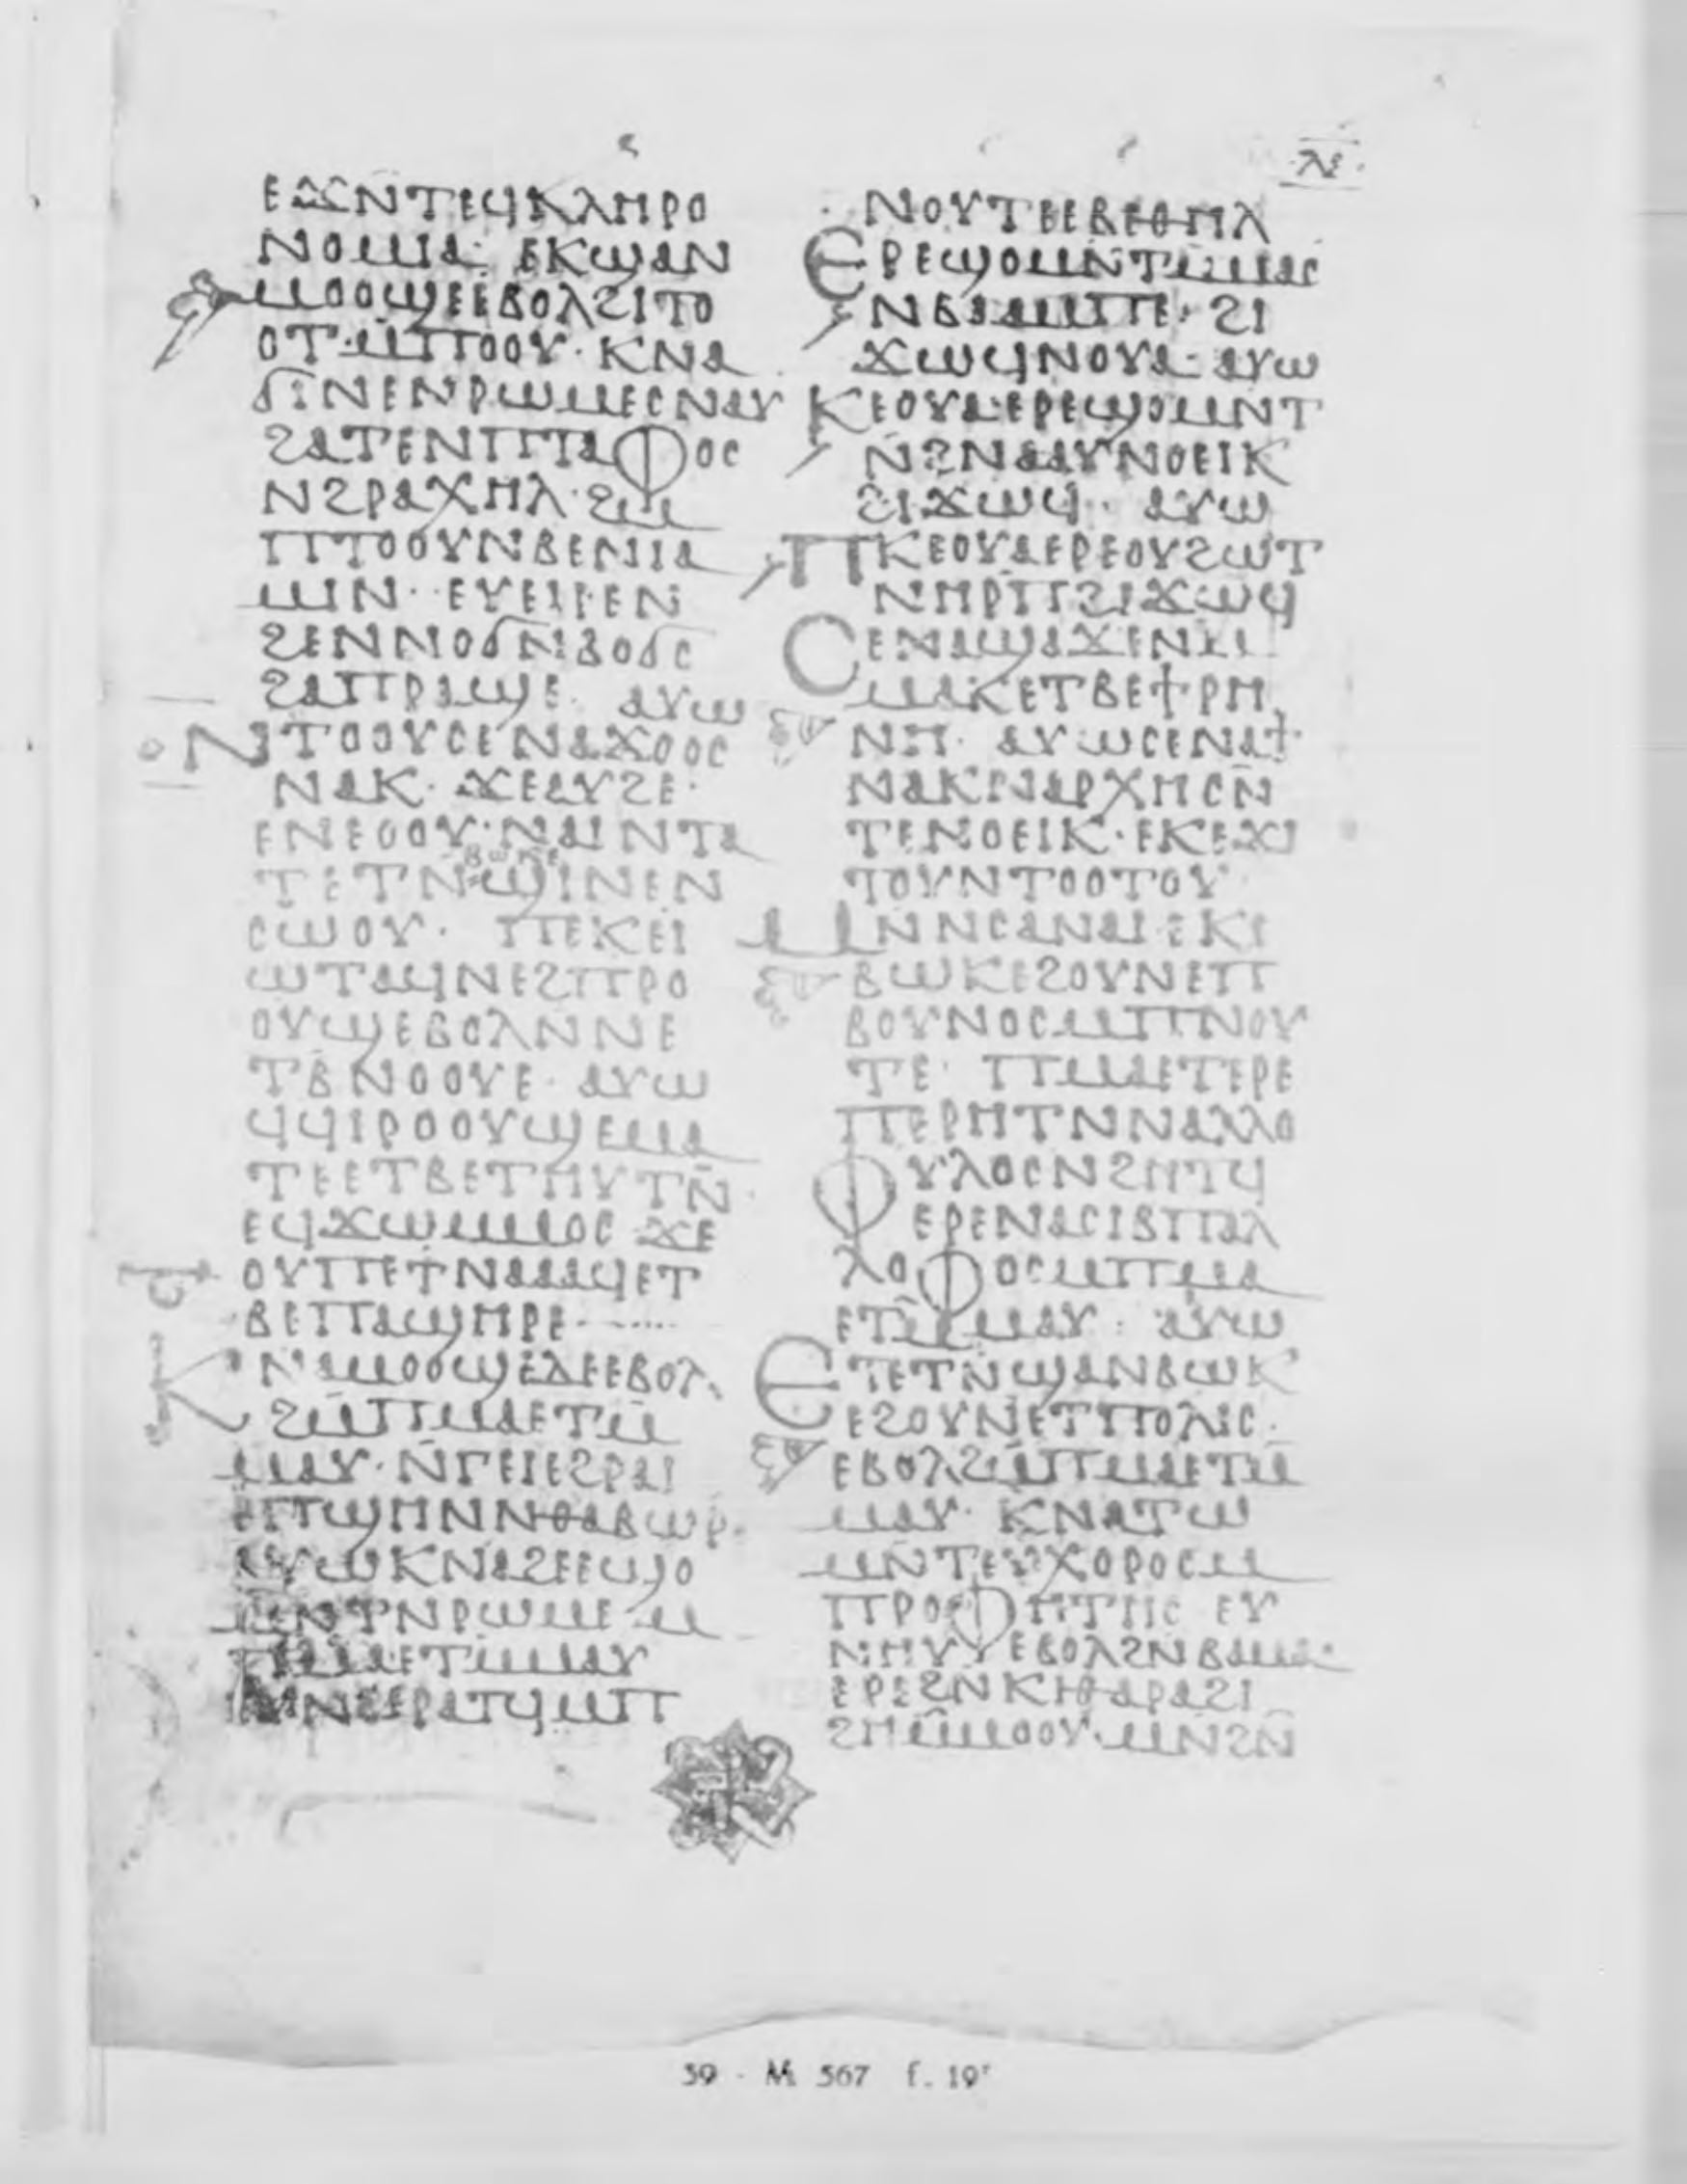 ⲗⲍ
ⲉϫⲛⲧⲉϥⲕⲗⲏⲣⲟ
ⲛⲟⲙⲓⲁ· ⲉⲕϣⲁⲛ
ⲙⲟⲟϣⲉⲉⲃⲟⲗϩⲓⲧⲟ
ⲟⲧ·ⲙ̄ⲡⲟⲟⲩ· ⲕⲛⲁ
ϭⲓⲛⲉⲛⲣⲱⲙⲉⲥⲛⲁⲩ
ϩⲁⲧⲉⲛⲡⲧⲁⲫⲟⲥ
ⲛϩⲣⲁⲭⲏⲗ·ϩⲙ
ⲡⲧⲟⲟⲩⲛⲃⲉⲛⲓⲁ
ⲙⲓⲛ· ⲉⲩⲉⲓⲣⲉⲛ
ϩⲉⲛⲛⲟϭⲛⲃⲟϭⲥ
ϩⲁⲡⲣⲁϣⲉ· ⲁⲩⲱ
ⲛⲧⲟⲟⲩⲥⲉⲛⲁϫⲟⲟⲥ
ⲛⲁⲕ· ϫⲉⲁⲩϩⲉ·
ⲉⲛⲉⲟⲟⲩ·ⲛⲁⲓⲛⲧⲁ
ⲃⲱⲕⲉ
ⲧⲉⲧⲛ̄ϣⲓⲛⲉⲛ
ⲥⲱⲟⲩ· ⲡⲉⲕⲉⲓ
ⲱⲧⲁϥⲛⲉϩⲡⲣⲟ
ⲟⲩϣⲉⲃⲟⲗⲛⲛⲉ
ⲧⲃⲛⲟⲟⲩⲉ· ⲁⲩⲱ
ϥϥⲓⲣⲟⲟⲩϣⲉⲙⲁ
ⲧⲉⲉⲧⲃⲉⲧⲏⲩⲧⲛ̄·
ⲉϥϫⲱⲙⲙⲟⲥ ϫⲉ
ⲟⲩⲡⲉϯⲛⲁⲁⲁϥⲉⲧ
ⲃⲉⲡⲁϣⲏⲣⲉ·
ⲕⲛⲁⲙⲟⲟϣⲉⲇⲉⲉⲃⲟⲗ
ϩⲙ̄ⲡⲙⲁⲉⲧⲙ̄
ⲙⲁⲩ·ⲛ̄ⲅⲉⲓⲉϩⲣⲁⲓ
ⲉⲡϣⲏⲛⲛⲑⲁⲃⲱⲣ·
ⲁⲩⲱⲕⲛⲁϩⲉⲉϣⲟ
ⲙⲛⲧⲛⲣⲱⲙⲉ ⲙ
ⲡⲙⲁⲉⲧⲙⲙⲁⲩ
ⲛⲁϩⲉⲣⲁⲧϥⲙⲡ
ⲛⲟⲩⲧⲉⲉⲃⲉⲑⲏⲗ
ⲉⲣⲉϣⲟⲙⲛⲧⲙ̄ⲙⲁⲥ
ⲛⲃⲁⲁⲙⲡⲉ· ϩⲓ
ϫⲱϥⲛⲟⲩⲁ· ⲁⲩⲱ
ⲕⲉⲟⲩⲁ·ⲉⲣⲉϣⲟⲙⲛⲧ
ⲛ̄ϩⲛⲁⲁⲩⲛⲟⲉⲓⲕ
ϩⲓϫⲱϥ· ⲁⲩⲱ
ⲡⲕⲉⲟⲩⲁⲉⲣⲉⲟⲩϩⲱⲧ
ⲛⲏⲣⲡ̄ϩⲓϫⲱϥ
ⲥⲉⲛⲁϣⲁϫⲉⲛⲙ
ⲙⲁⲕⲉⲧⲃⲉϯⲣⲏ
ⲛⲏ· ⲁⲩⲱⲥⲉⲛⲁϯ
ⲛⲁⲕⲛⲁⲣⲭⲏⲥⲛ̄
ⲧⲉⲛⲟⲉⲓⲕ·ⲉⲕⲉϫⲓ
ⲧⲟⲩⲛⲧⲟⲟⲧⲟⲩ
ⲙⲛⲛⲥⲁⲛⲁⲓ ⲉⲕⲉ
ⲃⲱⲕⲉϩⲟⲩⲛⲉⲡ
ⲃⲟⲩⲛⲟⲥⲙⲡⲛⲟⲩ
ⲧⲉ· ⲡⲙⲁⲉⲧⲉⲣⲉ
ⲡⲉⲣⲏⲧⲛⲛⲁⲗⲗⲟ
ⲫⲩⲗⲟⲥⲛϩⲏⲧϥ
ⲉⲣⲉⲛⲁⲥⲓⲃⲡⲁⲗ
ⲗⲟⲫⲟⲥⲙⲡⲙⲁ
ⲉⲧⲙ̄ⲙⲁⲩ· ⲁⲩⲱ
ⲉⲧⲉⲧⲛϣⲁⲛⲃⲱⲕ
ⲉϩⲟⲩⲛⲉⲧⲡⲟⲗⲓⲥ·
ⲉⲃⲟⲗϩⲙ̄ⲡⲙⲁⲉⲧⲙ̄
ⲙⲁⲩ· ⲕⲛⲁⲧⲱ
ⲙⲛ̄ⲧⲉⲩⲭⲟⲣⲟⲥⲙ
ⲡⲣⲟⲫⲏⲧⲏⲥ ⲉⲩ
ⲛⲏⲩⲉⲃⲟⲗϩⲛⲃⲁⲙⲁ·
ⲉⲣⲉϩⲛⲕⲓⲑⲁⲣⲁϩⲓ
ϩⲏⲙ̄ⲙⲟⲟⲩ·ⲙⲛϩⲛ̄
39 - M 567 f. 19ʳ